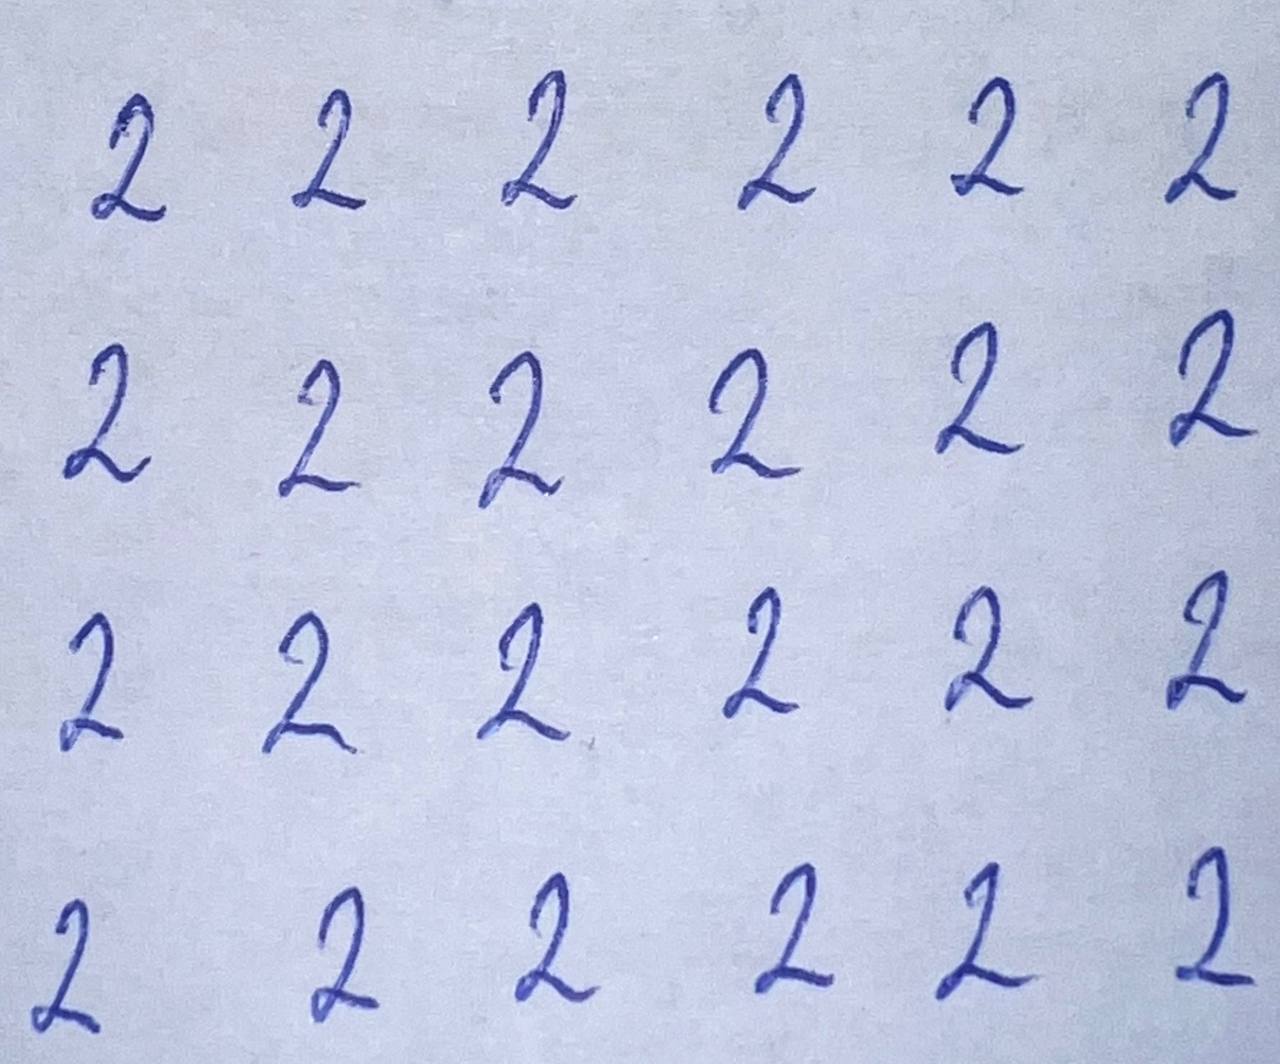 2 2 2 2 2 2
2 2 2 2 2 2
2 2 2 2 2 2
2 2 2 2 2 2